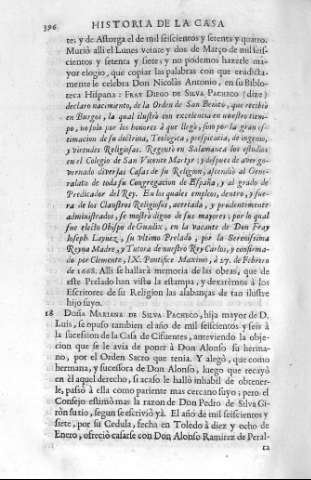 396 HISTORIA DE LA CASA
te, y de Astorga el de mil seiscientos y setenta y quatro.
Murió alli el Lunes veinte y dos de Março de mil seis-
cientos y setenta y siete; y no podemos hazerle ma-
yor elogio, que copiar las palabras con que erudicta-
mente le celebra Don Nicolàs Antonio, en su Biblio-
teca Hispana: FRAY DIEGO DE SILVA PACHECO (dize)
declaro nacimiento, de la Orden de San Benito, que recibiò
en Burgos, la qual ilustrò con excelencia en nuestro tiem-
po, no solo por los honores à que llegò, sino por la gran es-
timacion de su doctrina, Teologica, predicatoria, de ingenio,
y virtudes Religiosas. Regentò en Salamanca los estudios
en el Colegio de San Vicente Martyr; y despues de aver go-
vernado diversas Casas de su Religion, ascendiò al Gene-
ralato de toda su Congregacion de España, y al grado de
Predicador del Rey. En los quales empleos, dentro, y fue-
ra de los Claustros Religiosos, acertada, y prudentemente
administrados, se mostrò digno de sus mayores; por lo qual
fue electo Obispo de Guadix, en la vacante de Don Fray
Joseph Laynez, su vltimo Prelado, por la Serenissima
Reyna Madre, y Tutora de nuestro Rey Carlos, y confirma-
do por Clemente, IX. Pontifice Maximo, à 27. de Febrero
de 1668. Alli se hallarà memoria de las obras, que de
este Prelado han visto la estampa, y dexarèmos à los
Escritores de su Religion las alabanças de tan ilustre
hijo suyo.
18 DOÑA MARIANA DE SILVA PACHECO, hija mayor de D.
Luis, se opuso tambien el año de mil seiscientos y seis à
la sucession de la Casa de Cifuentes, anteviendo la obje-
cion que se le avia de poner à Don Alonso su herma-
no, por el Orden Sacro que tenia. Y alegò, que como
hermana, y sucessora de Don Alonso, luego que recayò
en él aquel derecho, si acaso le hallò inhabil de obtener-
le, passò à ella como pariente mas cercano suyo; pero el
Consejo estimò mas la razon de Don Pedro de Silva Gi-
ròn su tio, segun se escriviò yà. El año de mil seiscientos y
siete, por su Cedula, fecha en Toledo à diez y ocho de
Enero, ofreciò casarse con Don Alonso Ramirez de Peral-
ta